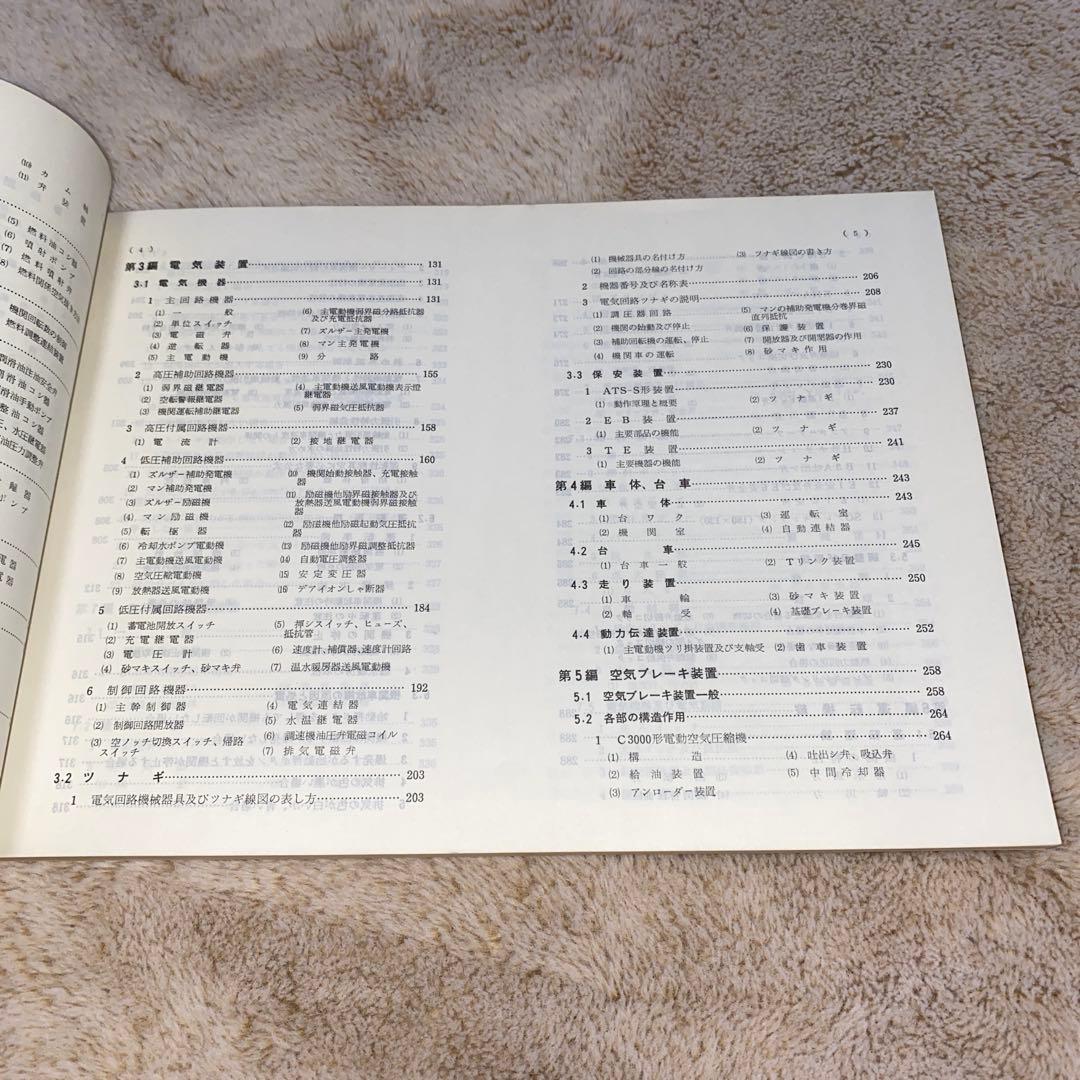 ⑽ カム軸
⑾ 弁装置
(5) 燃料油コシ器
(6) 噴射ポンプ
(7) 燃料噴射弁
機関回転数の制御
燃料調整連結装置
( 4 )
第3編 電気装置 131
3-1 電気機器 131
1 主回路機器 131
(1) 一般
(2) 単位スイッチ
(3) 電磁弁
(4) 逆転器
(5) 主電動機
(6) 主電動機弱界磁分路抵抗器及び充電抵抗器
(7) ズルザー主発電機
(8) マン主発電機
(9) 分路
2 高圧補助回路機器 155
(1) 弱界磁継電器
(2) 空転警報継電器
(3) 機関運転補助継電器
(4) 主電動機送風電動機表示燈
継電器
(5) 弱界磁気圧抵抗器
3 高圧付属回路機器 158
(1) 電流計
(2) 接地継電器
4 低圧補助回路機器 160
(1) ズルザー補助発電機
(2) マン補助発電機
(3) ズルザー励磁機
(4) マン励磁機
(5) 転極器
(6) 冷却水ポンプ電動機
(7) 主電動機送風電動機
(8) 空気圧縮電動機
(9) 放熱器送風電動機
⑽ 機関始動接触器、充電接触器
⑾ 励磁機他励界磁接触器及び
放熱器送風電動機弱界磁接触器
⑿ 励磁機他励磁起動気圧抵抗器
⒀ 励磁機他励界磁調整抵抗器
⒁ 自動電圧調整器
⒂ 安定変圧器
⒃ デアイオンしゃ断器
5 低圧付属回路機器 184
(1) 蓄電池開放スイッチ
(2) 充電継電器
(3) 電圧計
(4) 砂マキスイッチ、砂マキ弁
(5) 押シスイッチ、ヒューズ、
抵抗管
(6) 速度計、補償器、速度計回路
(7) 温水暖房器送風電動機
6 制御回路機器 192
(1) 主幹制御器
(2) 制御回路開放器
(3) 空ノッチ切換スイッチ、帰路
スイッチ
(4) 電気連結器
(5) 水温継電器
(6) 調速機油圧弁電磁コイル
(7) 排気電磁弁
3-2 ツナギ 203
1 電気回路機械器具及びツナギ線図の表し方 203
( 5 )
(1) 機械器具の名付け方
(2) 回路の部分線の名付け方
(3) ツナギ線図の書き方
2 機器番号及び名称表 206
3 電気回路ツナギの説明 208
(1) 調圧器回路
(2) 機関の始動及び停止
(3) 補助回転機の運転、停止
(4) 機関車の運転
(5) マンの補助発電機分巻界磁
直列抵抗
(6) 保護装置
(7) 開放器及び開閉器の作用
(8) 砂マキ作用
3.3 保安装置 230
1 ATS-S形装置 230
(1) 動作原理と概要
(2) ツナギ
2 EB装置 237
(1) 主要部品の機能
(2) ツナギ
3 TE装置 241
(1) 主要機器の機能
(2) ツナギ
第4編 車体、台車 243
4-1 車体 243
(1) 台ワク
(2) 機関室
(3) 運転室
(4) 自動連結器
4.2 台車 245
(1) 台車一般
(2) Tリンク装置
4.3 走り装置 250
(1) 車輪
(2) 軸受
(3) 砂マキ装置
(4) 基礎ブレーキ装置
4.4 動力伝達装置 252
(1) 主電動機ツリ掛装置及び支軸受
(2) 歯車装置
第5編 空気ブレーキ装置 258
5.1 空気ブレーキ装置一般 258
5.2 各部の構造作用 264
1 C3000形電動空気圧縮機 264
(1) 構造
(2) 給油装置
(3) アンローダー装置
(4) 吐出シ弁、吸込弁
(5) 中間冷却器